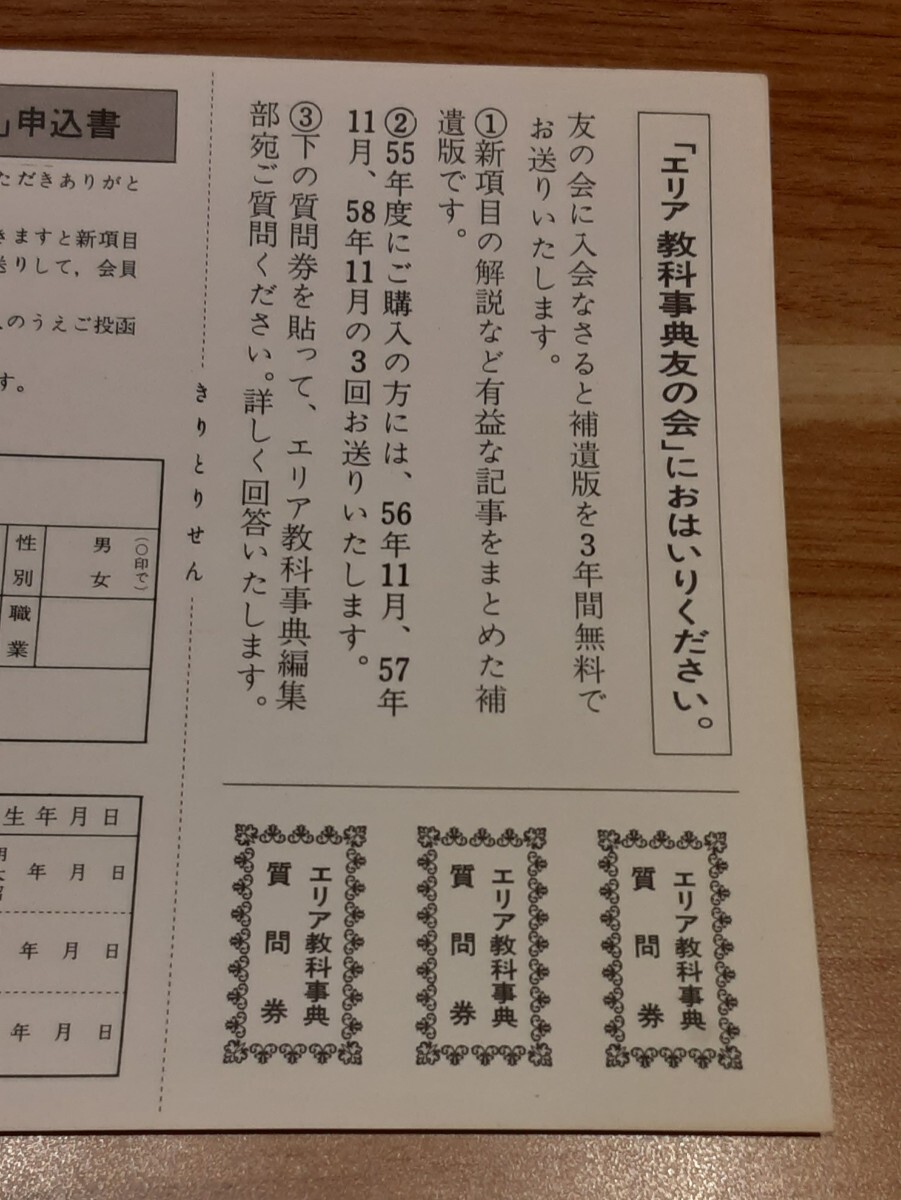 「エリア教科事典友の会」におはいりください。
友の会に入会なさると補遺版を3年間無料で
お送りいたします。
①新項目の解説など有益な記事をまとめた補
遺版です。
②55年度にご購入の方には、56年11月、57年
11月、58年11月の3回お送りいたします。
③下の質問券を貼って、エリア教科事典編集
部宛ご質問ください。詳しく回答いたします。
エリア教科事典
質問券
エリア教科事典
質問券
エリア教科事典
質問券
きりとりせん
」申込書
ただきありがと
きますと新項目
送りして，会員
のうえご投函
す。
性別
男
女
(○印で)
職業
生年月日
年 月 日
年 月 日
年 月 日